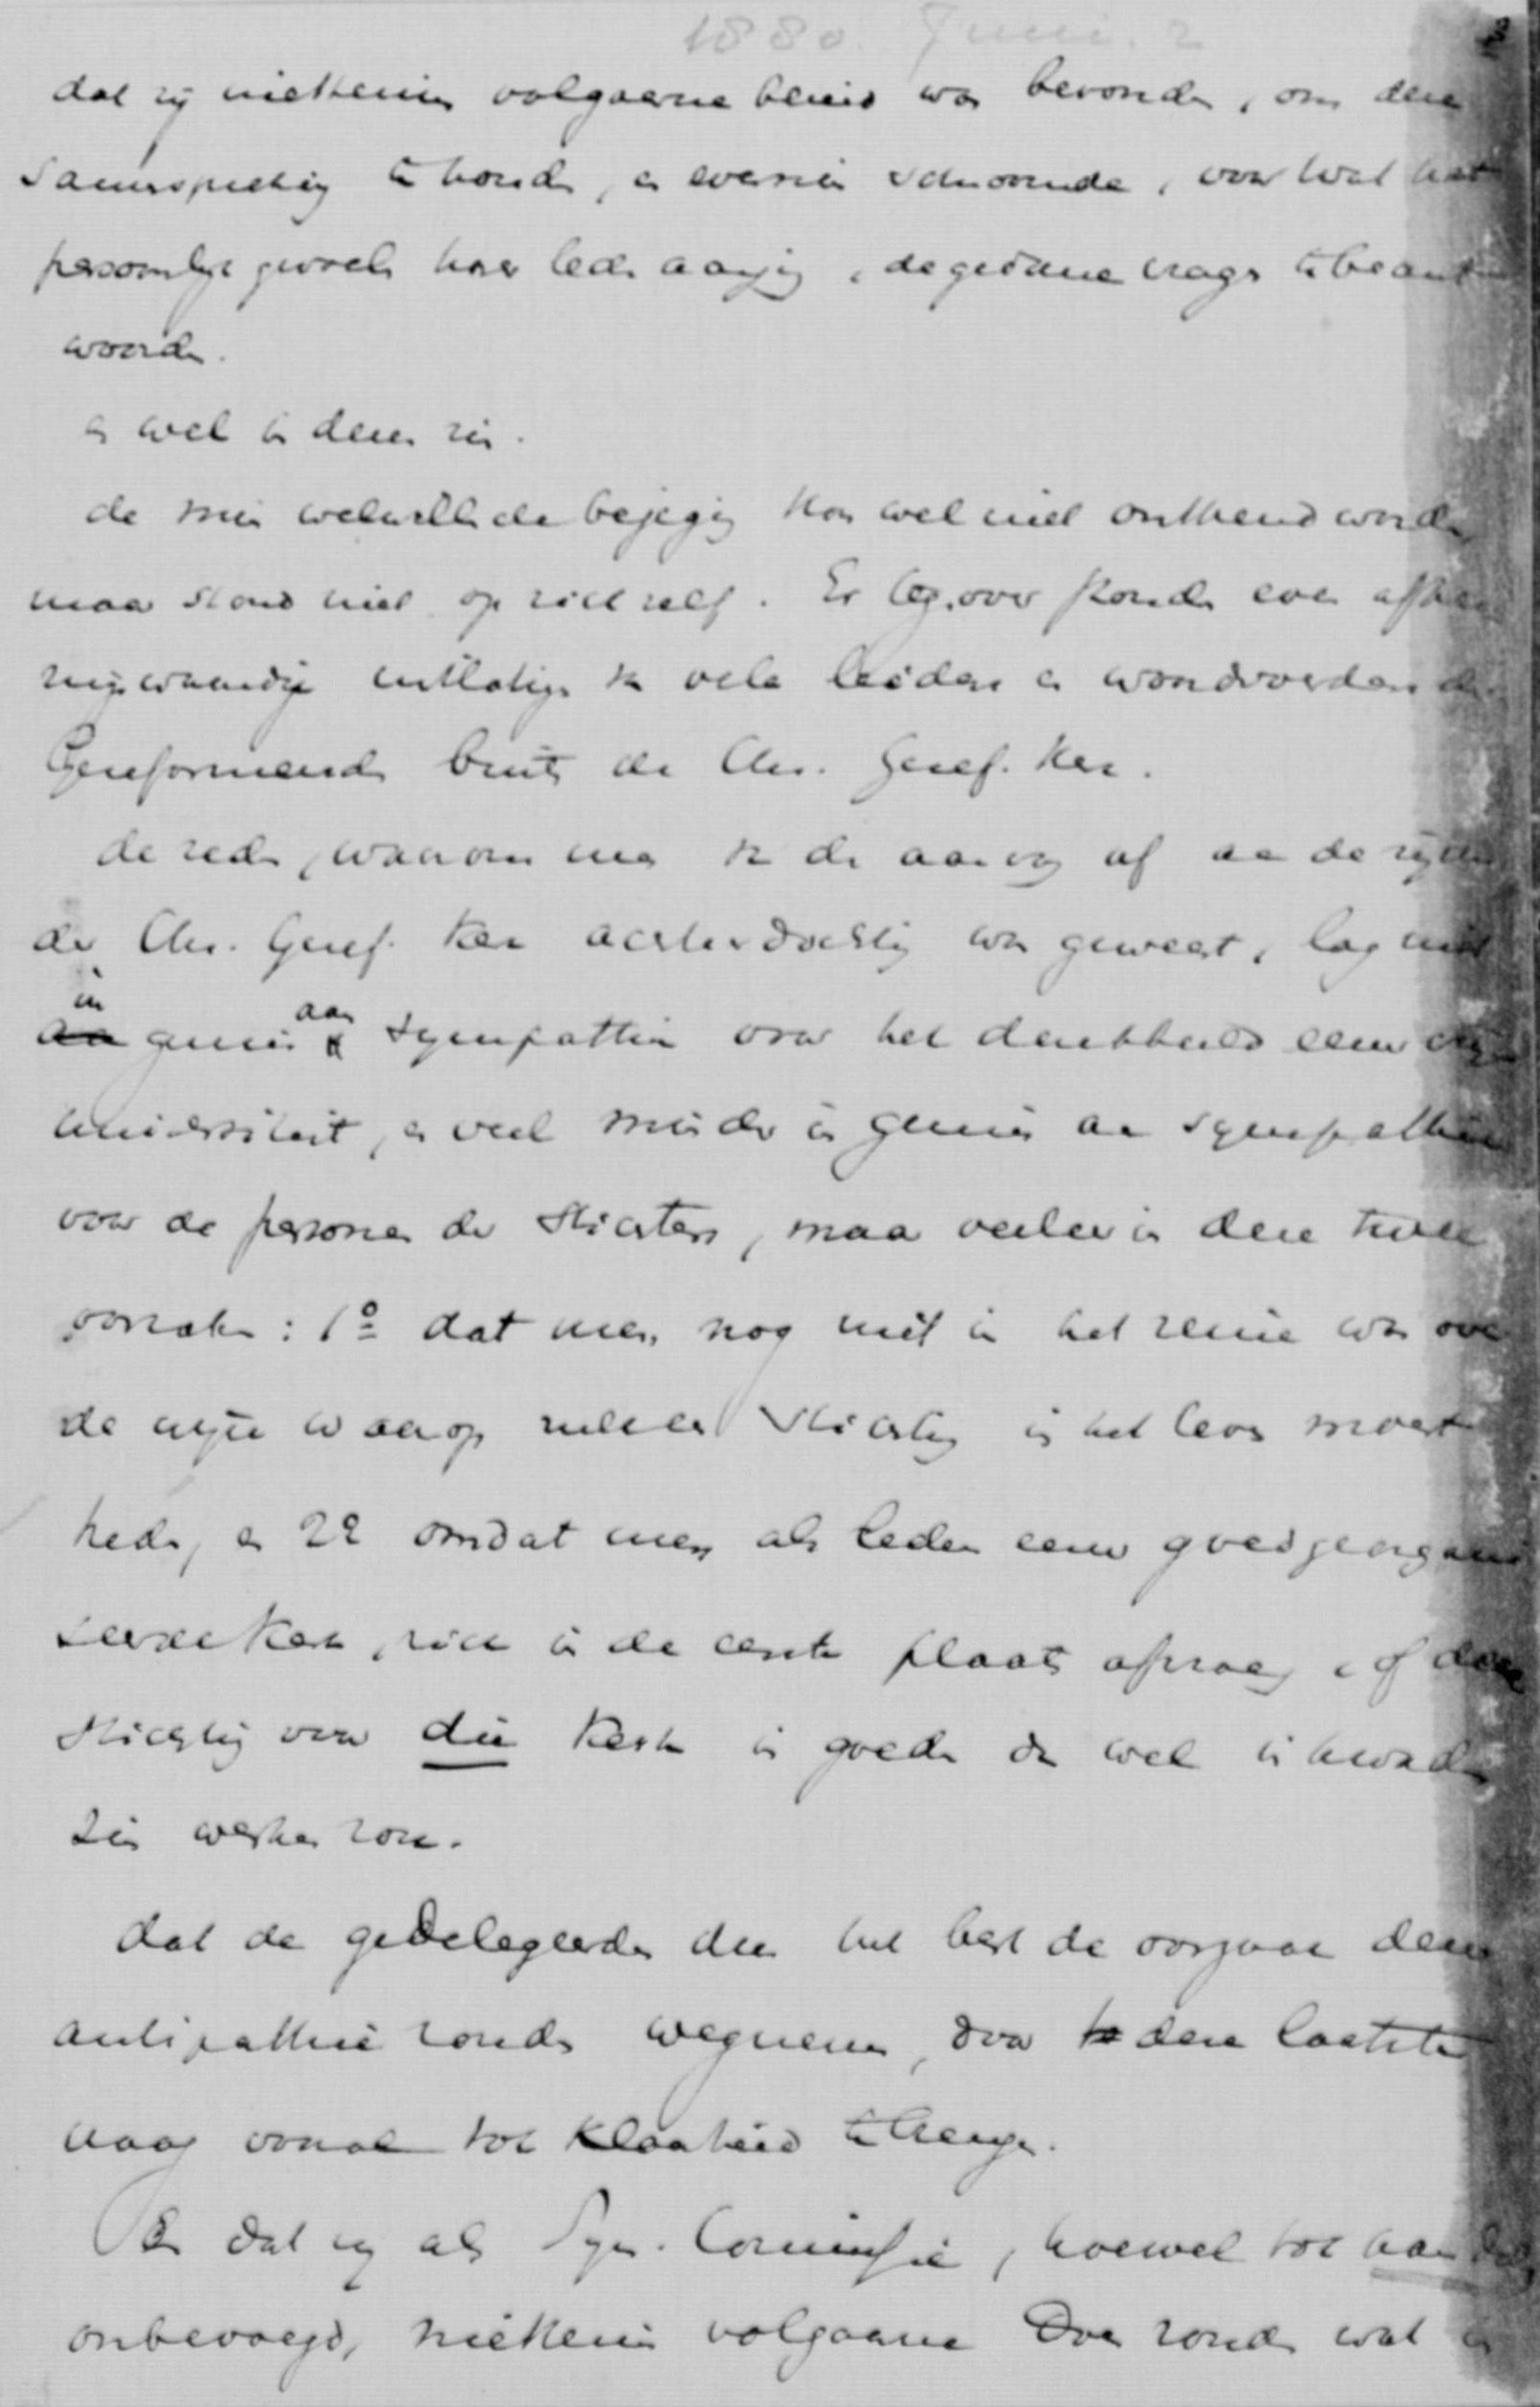 1880. Juni. 2
dat zij niettemin volgaarne bereid was bevonden, om deze
samenspreking te houden, en evenzeer voldoende, voor wat het
persoonlijk gevoelen harer leden aanging, de gedane vragen te beant
woorden.
en wel in dezen zin.
de min welwillende bejegening kon wel niet ontkend worden
maar stond niet op zich zelf. Er tegenover stonden even
uitlatingen van vele leiders en woordvoerders der
Gereformeerden buiten de Chr. Geref. Kerk.
de reden, waarom men van den aanvang af aan de zijde
der Chr. Geref. Kerk achterdochtig was geweest, lag niet
in gemis aan sympathie voor het denkbeeld eener vrije
Universiteit, en veel minder in gemis aan sympathie
voor de personen der Stichters, maar veeleer in deze twee
oorzaken: 1o dat men nog niet in het reine was over
de wijze waarop zulk een Stichting in het leven moest
treden, en 2o omdat men als leden eener goedgeorgani
seerde Kerk, zich in de eerste plaats afvroeg, of deze
Stichting voor die Kerk in goeden dan wel in kwaden
zin werken zou.
dat de gedelegeerden dus het best de oorzaak dezer
antipathie zouden wegnemen, door deze laatste
vraag vooral tot klaarheid te brengen.
En dat zij als Syn. Commissie, hoewel tot handelen
onbevoegd, niettemin volgaarne doen zouden wat in